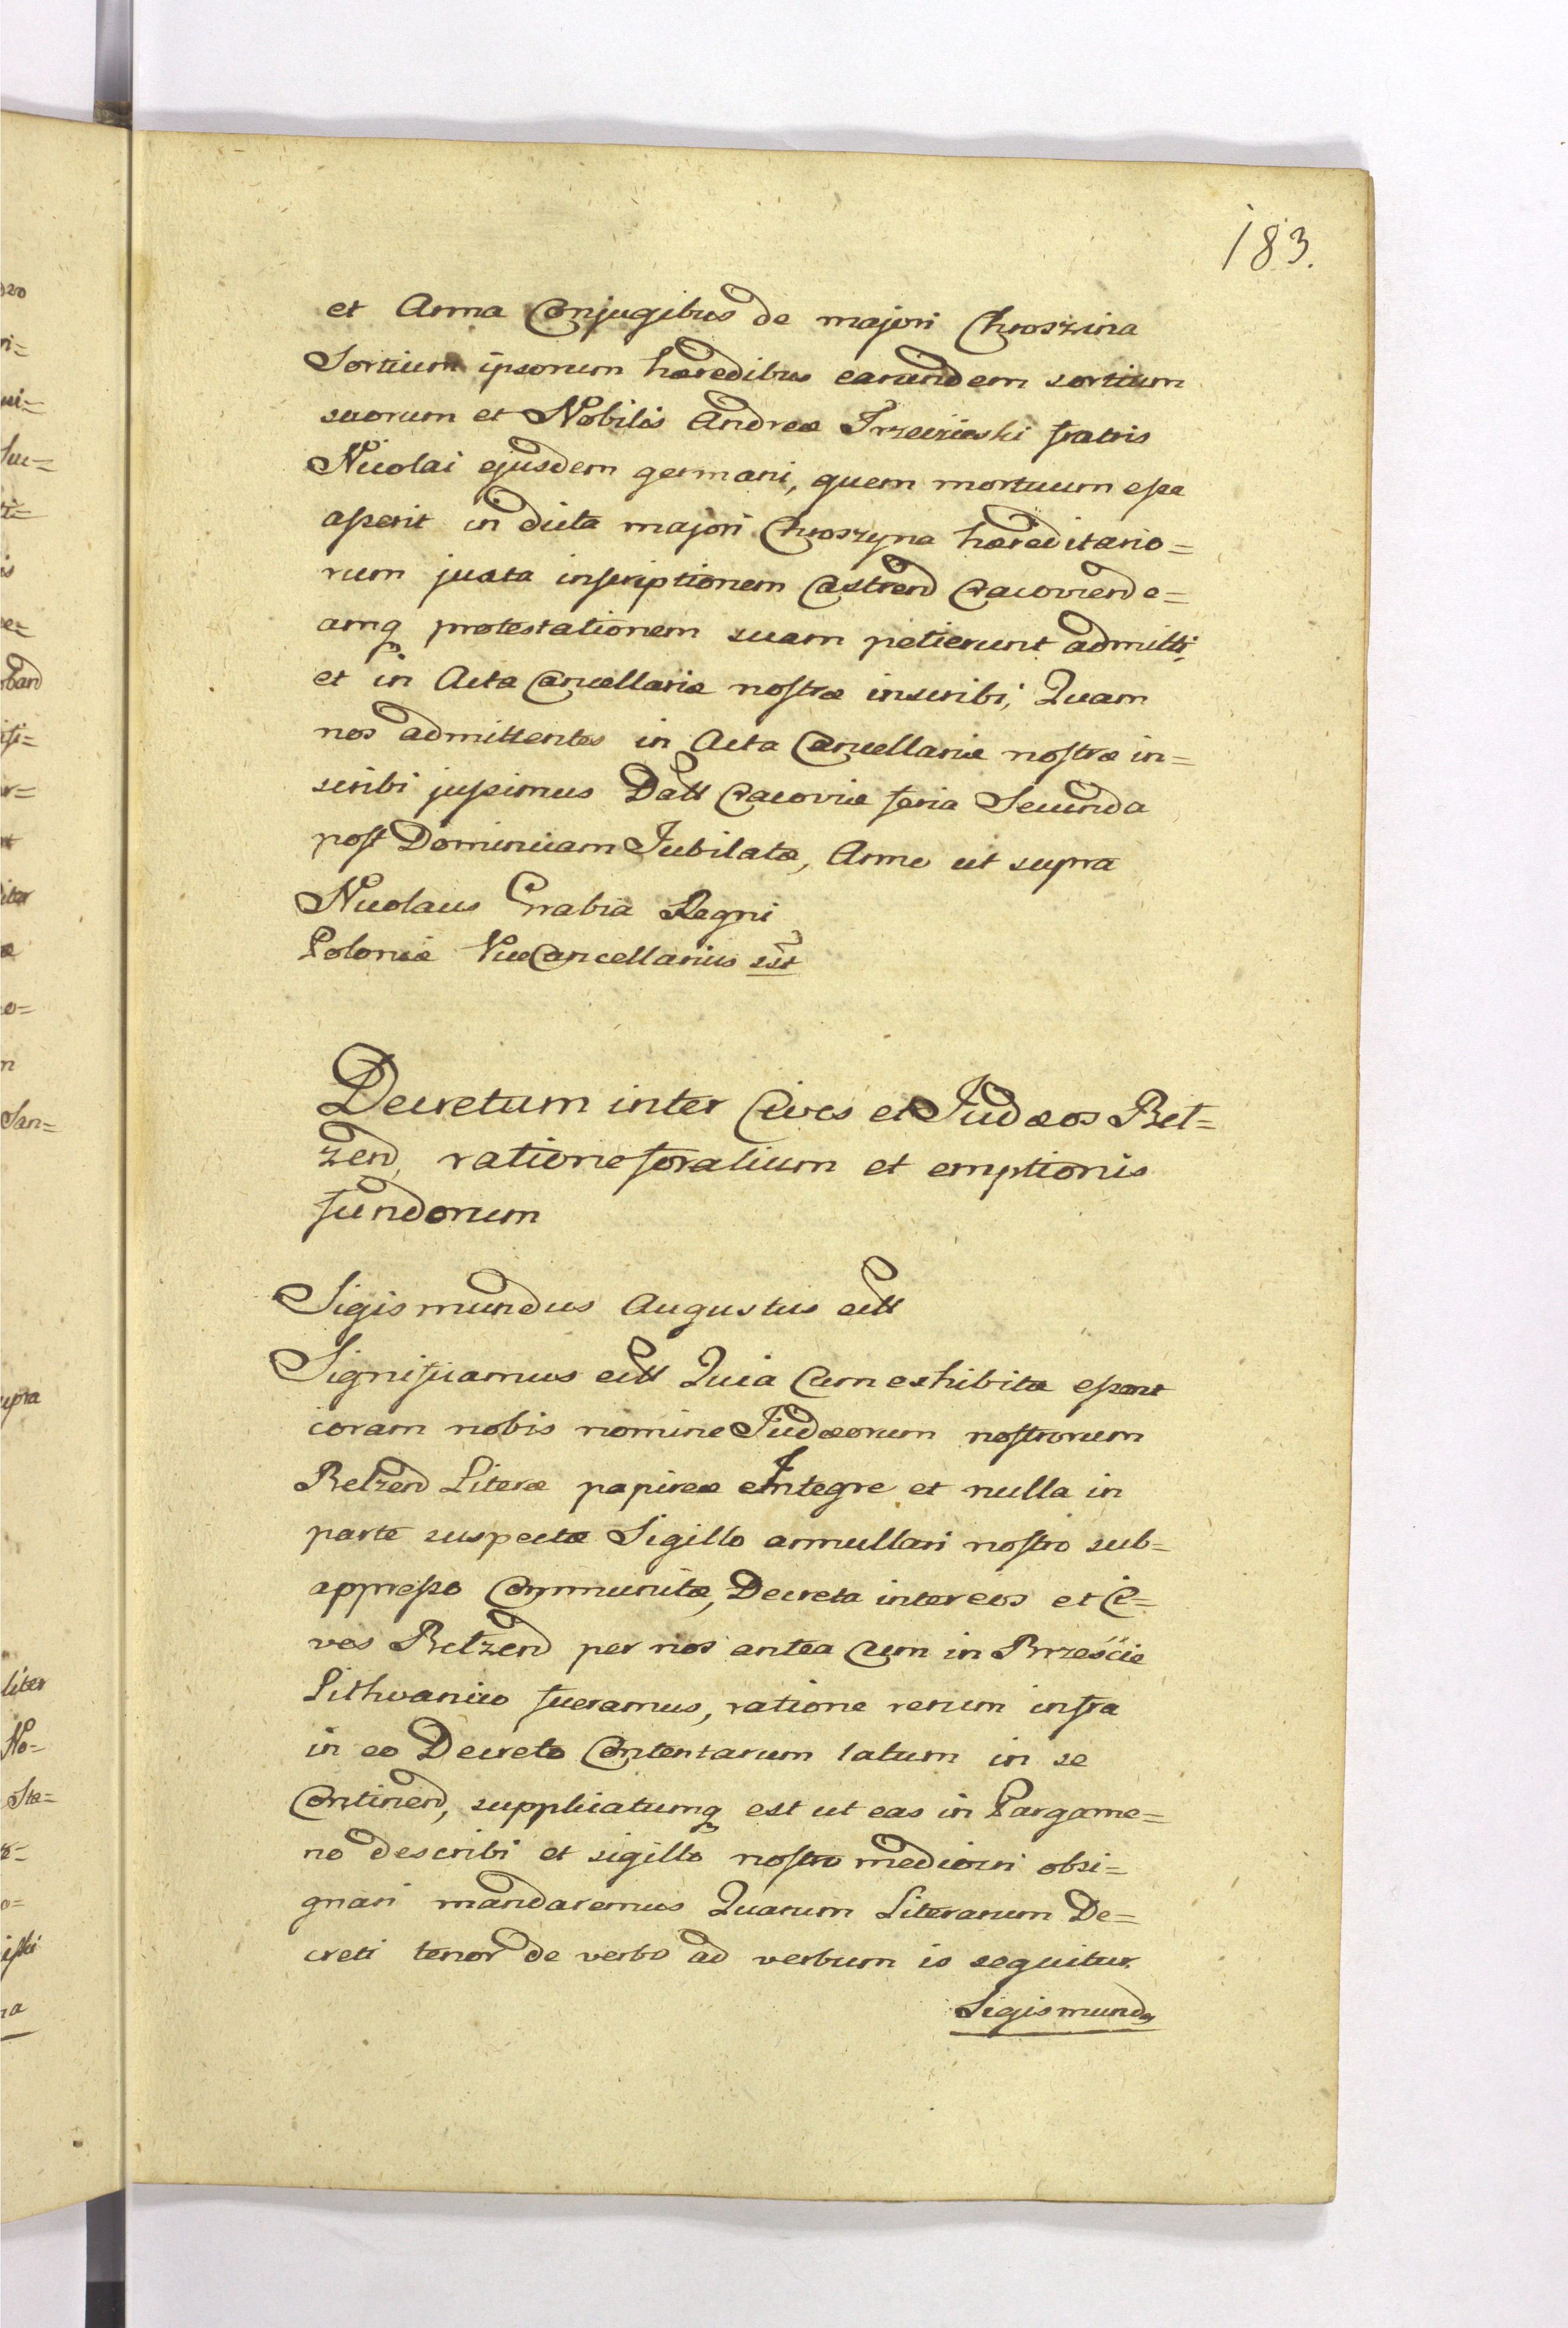 183.
et Anna Conjugibus de majori Chroszina
Sortium ipsorum hæredibus earundem sortium
suorum et Nobilis Andreæ Trzecieski fratris
Nicolai ejusdem germani, quem mortuum esse
asserit in dicta majori Chroszyna hæreditario=
rum juxta inscriptionem Castrens Cracoviens e=
amq protestationem suam petierunt admitti,
et in Acta Cancellariæ nostræ inscribi; Quam
nos admittentes in Acta Cancellariæ nostræ in=
scribi jussimus Datt Cracoviæ feria Secunda
post Dominicam Jubilatæ, Anno ut supra
Nicolaus Grabia Regni
Poloniæ ViceCancellarius sst
Decretum inter Cives et Judæos Bel=
zens ratione foralium et emptionis
fundorum
Sigismundus Augustus ett
Significamus ett Quia Cum exhibitæ essent
coram nobis nomine Judæorum nostrorum
Belzens Literæ papireæ Integre et nulla in
parte suspectæ Sigillo annullari nostro sub=
appresso Communitæ, Decreta inter eos et Ci=
ves Belzens per nos antea Cum in Brzeście
Lithvanico fueramus, ratione rerum infra
in eo Decreto Contentarum latum in se
Continens, supplicatumq est ut eas in Pargame=
no describi et sigillo nostro mediocri obsi=
gnari mandaremus Quarum Literarum De=
creti tenor de verbo ad verbum is sequitur.
Sigismundus